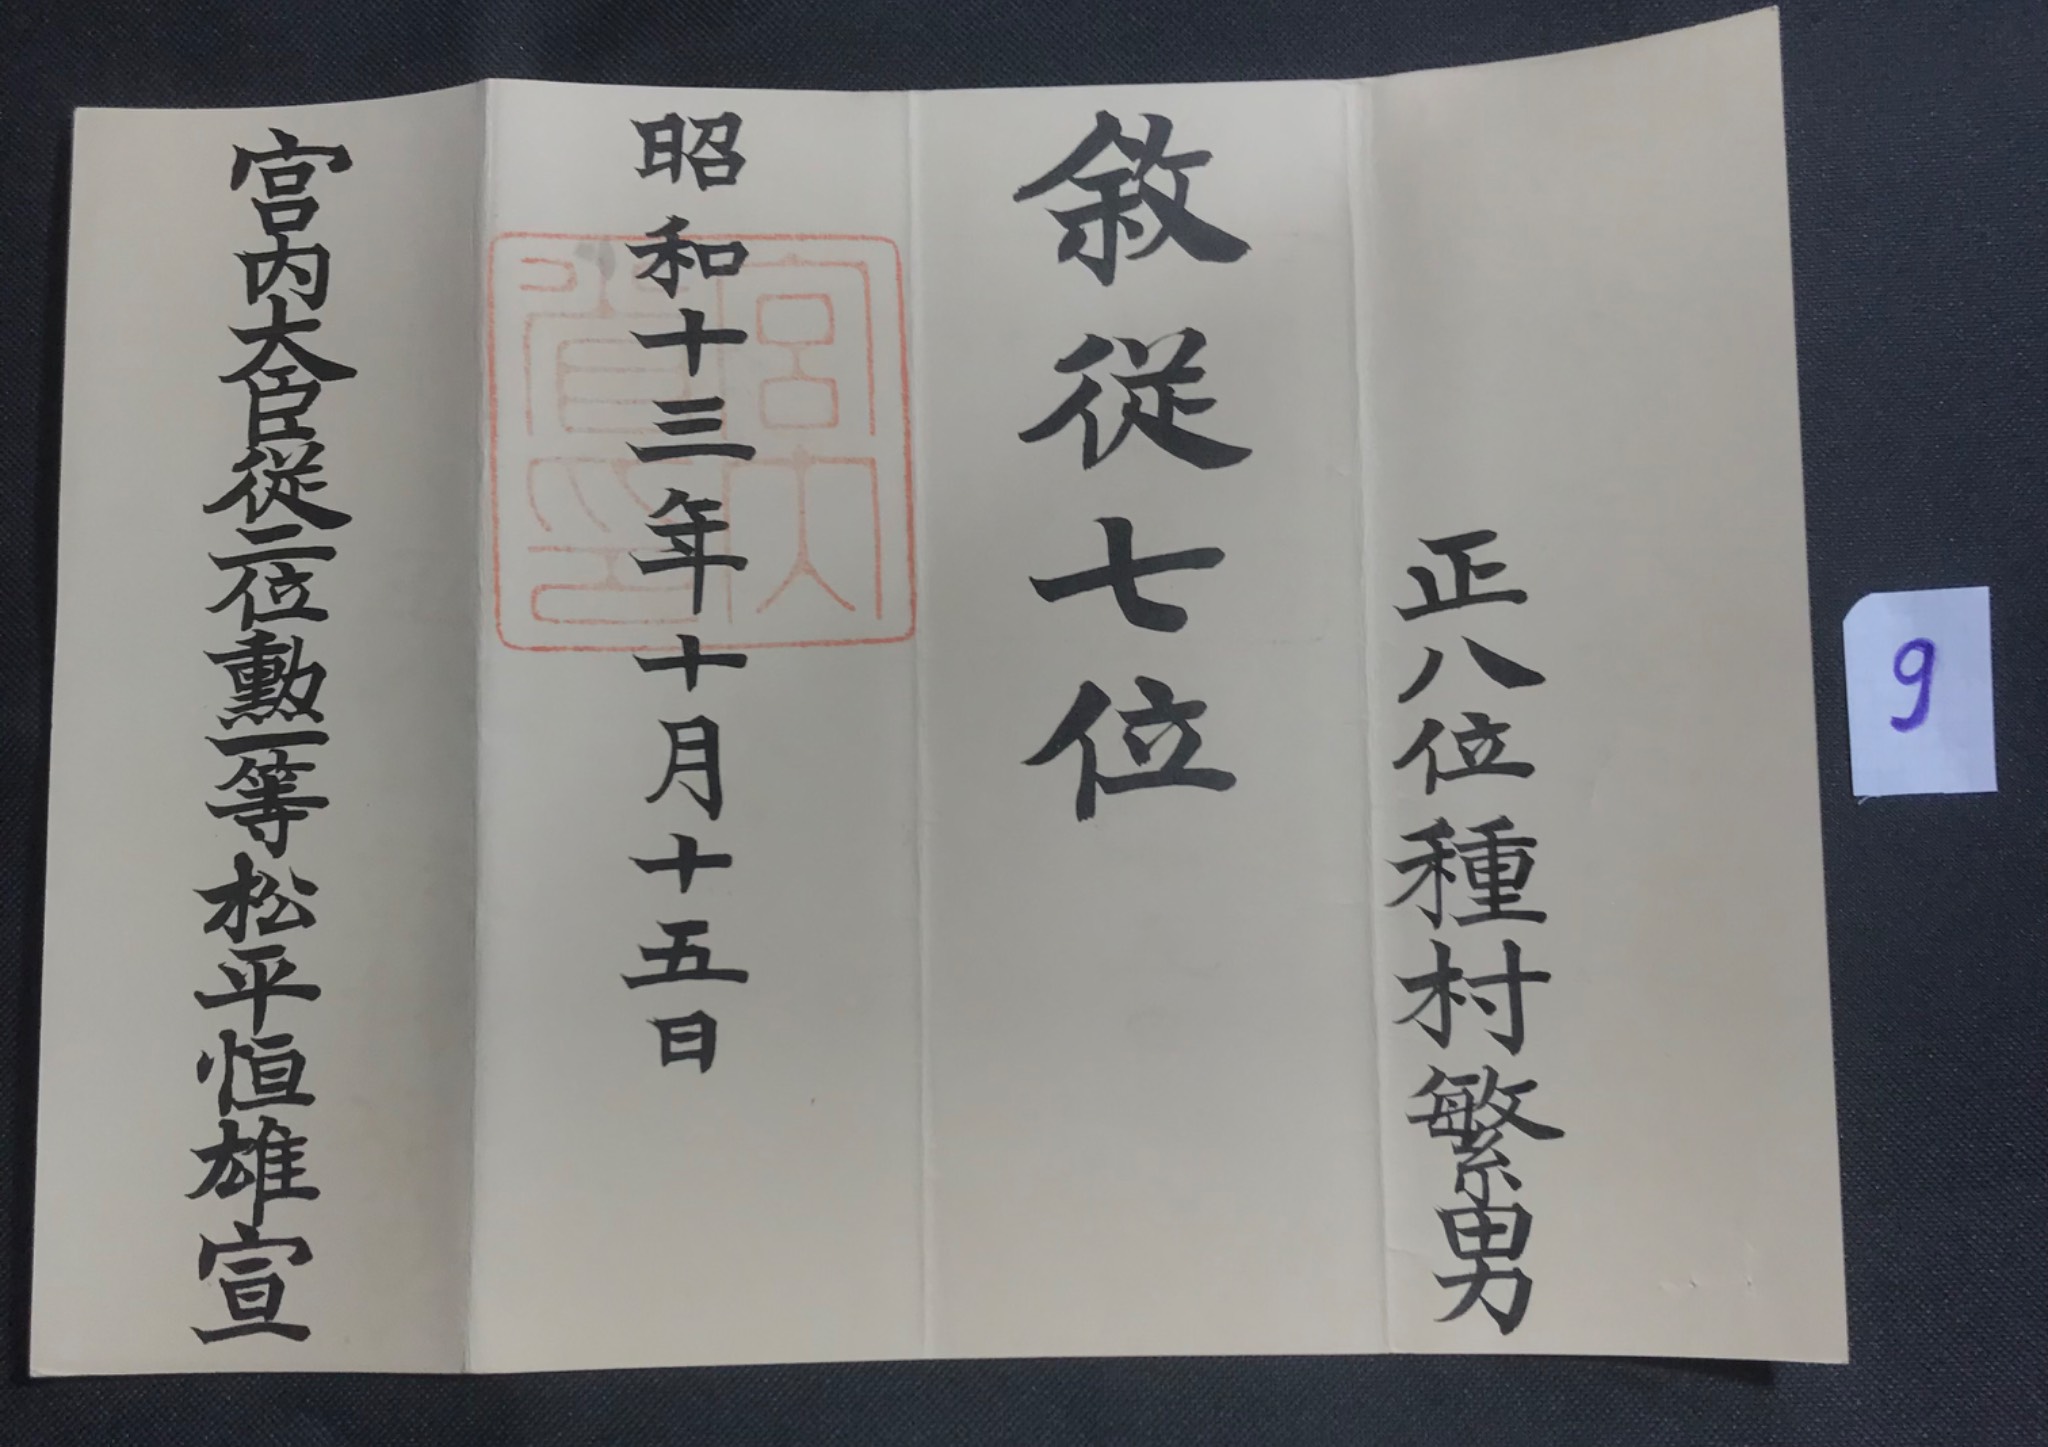 正八位種村繁男
敘從七位
昭和十三年十月十五日
宮内大臣從二位勳一等松平恒雄宣
宮内大臣之印
9